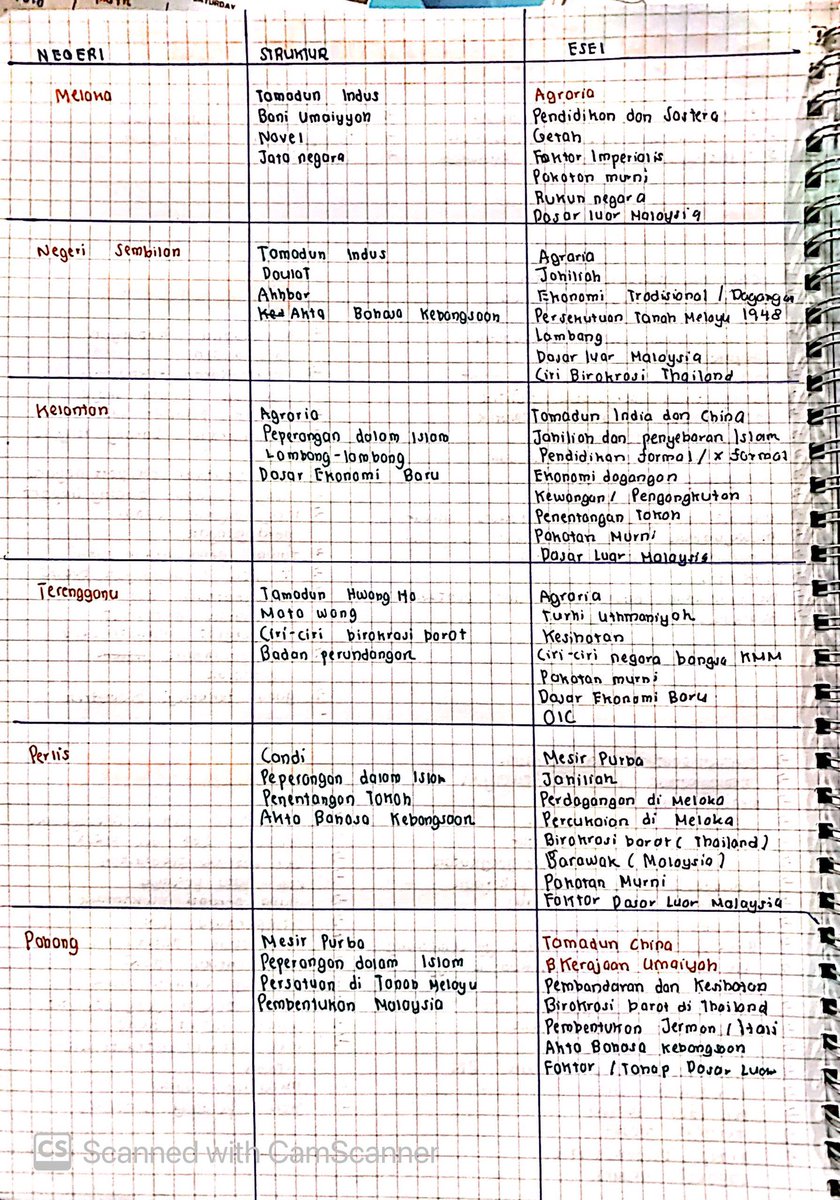 SATURDAY
NEGERI STRUKTUR ESEI
Melaka
Tamadun Indus
Bani Umaiyyah
Novel
Jata negara
Agraria
Pendidikan dan Sastera
Getah
Faktor Imperialis
Pakatan murni
Rukun negara
Dasar luar Malaysia
Negeri Sembilan
Tamadun Indus
Daulat
Akhbar
Akta Bahasa Kebangsaan
Agraria
Jahiliah
Ekonomi Tradisional / Dagangan
Persekutuan Tanah Melayu 1948
Lambang
Dasar luar Malaysia
Ciri Birokrasi Thailand
Kelantan
Agraria
Peperangan dalam Islam
Lambang-lambang
Dasar Ekonomi Baru
Tamadun India dan China
Jahiliah dan penyebaran Islam
Pendidikan formal / x formal
Ekonomi dagangan
Kewangan / Pengangkutan
Penentangan Tokoh
Pakatan Murni
Dasar Luar Malaysia
Terengganu
Tamadun Hwang Ho
Mata wang
Ciri-ciri birokrasi barat
Badan perundangan
Agraria
Turki Uthmaniyah
Kesihatan
Ciri-ciri negara bangsa KMM
Pakatan murni
Dasar Ekonomi Baru
OIC
Perlis
Candi
Peperangan dalam Islam
Penentangan Tokoh
Akta Bahasa Kebangsaan
Mesir Purba
Jahiliah
Perdagangan di Melaka
Percukaian di Melaka
Birokrasi barat (Thailand)
Sarawak (Malaysia)
Pakatan Murni
Faktor Dasar Luar Malaysia
Pahang
Mesir Purba
Peperangan dalam Islam
Persatuan di Tanah Melayu
Pembentukan Malaysia
Tamadun China
Kerajaan Umaiyah
Pembandaran dan Kesihatan
Birokrasi barat di Thailand
Pembentukan Jerman / Itali
Akta Bahasa kebangsaan
Faktor / Tahap Dasar Luar
CS Scanned with CamScanner